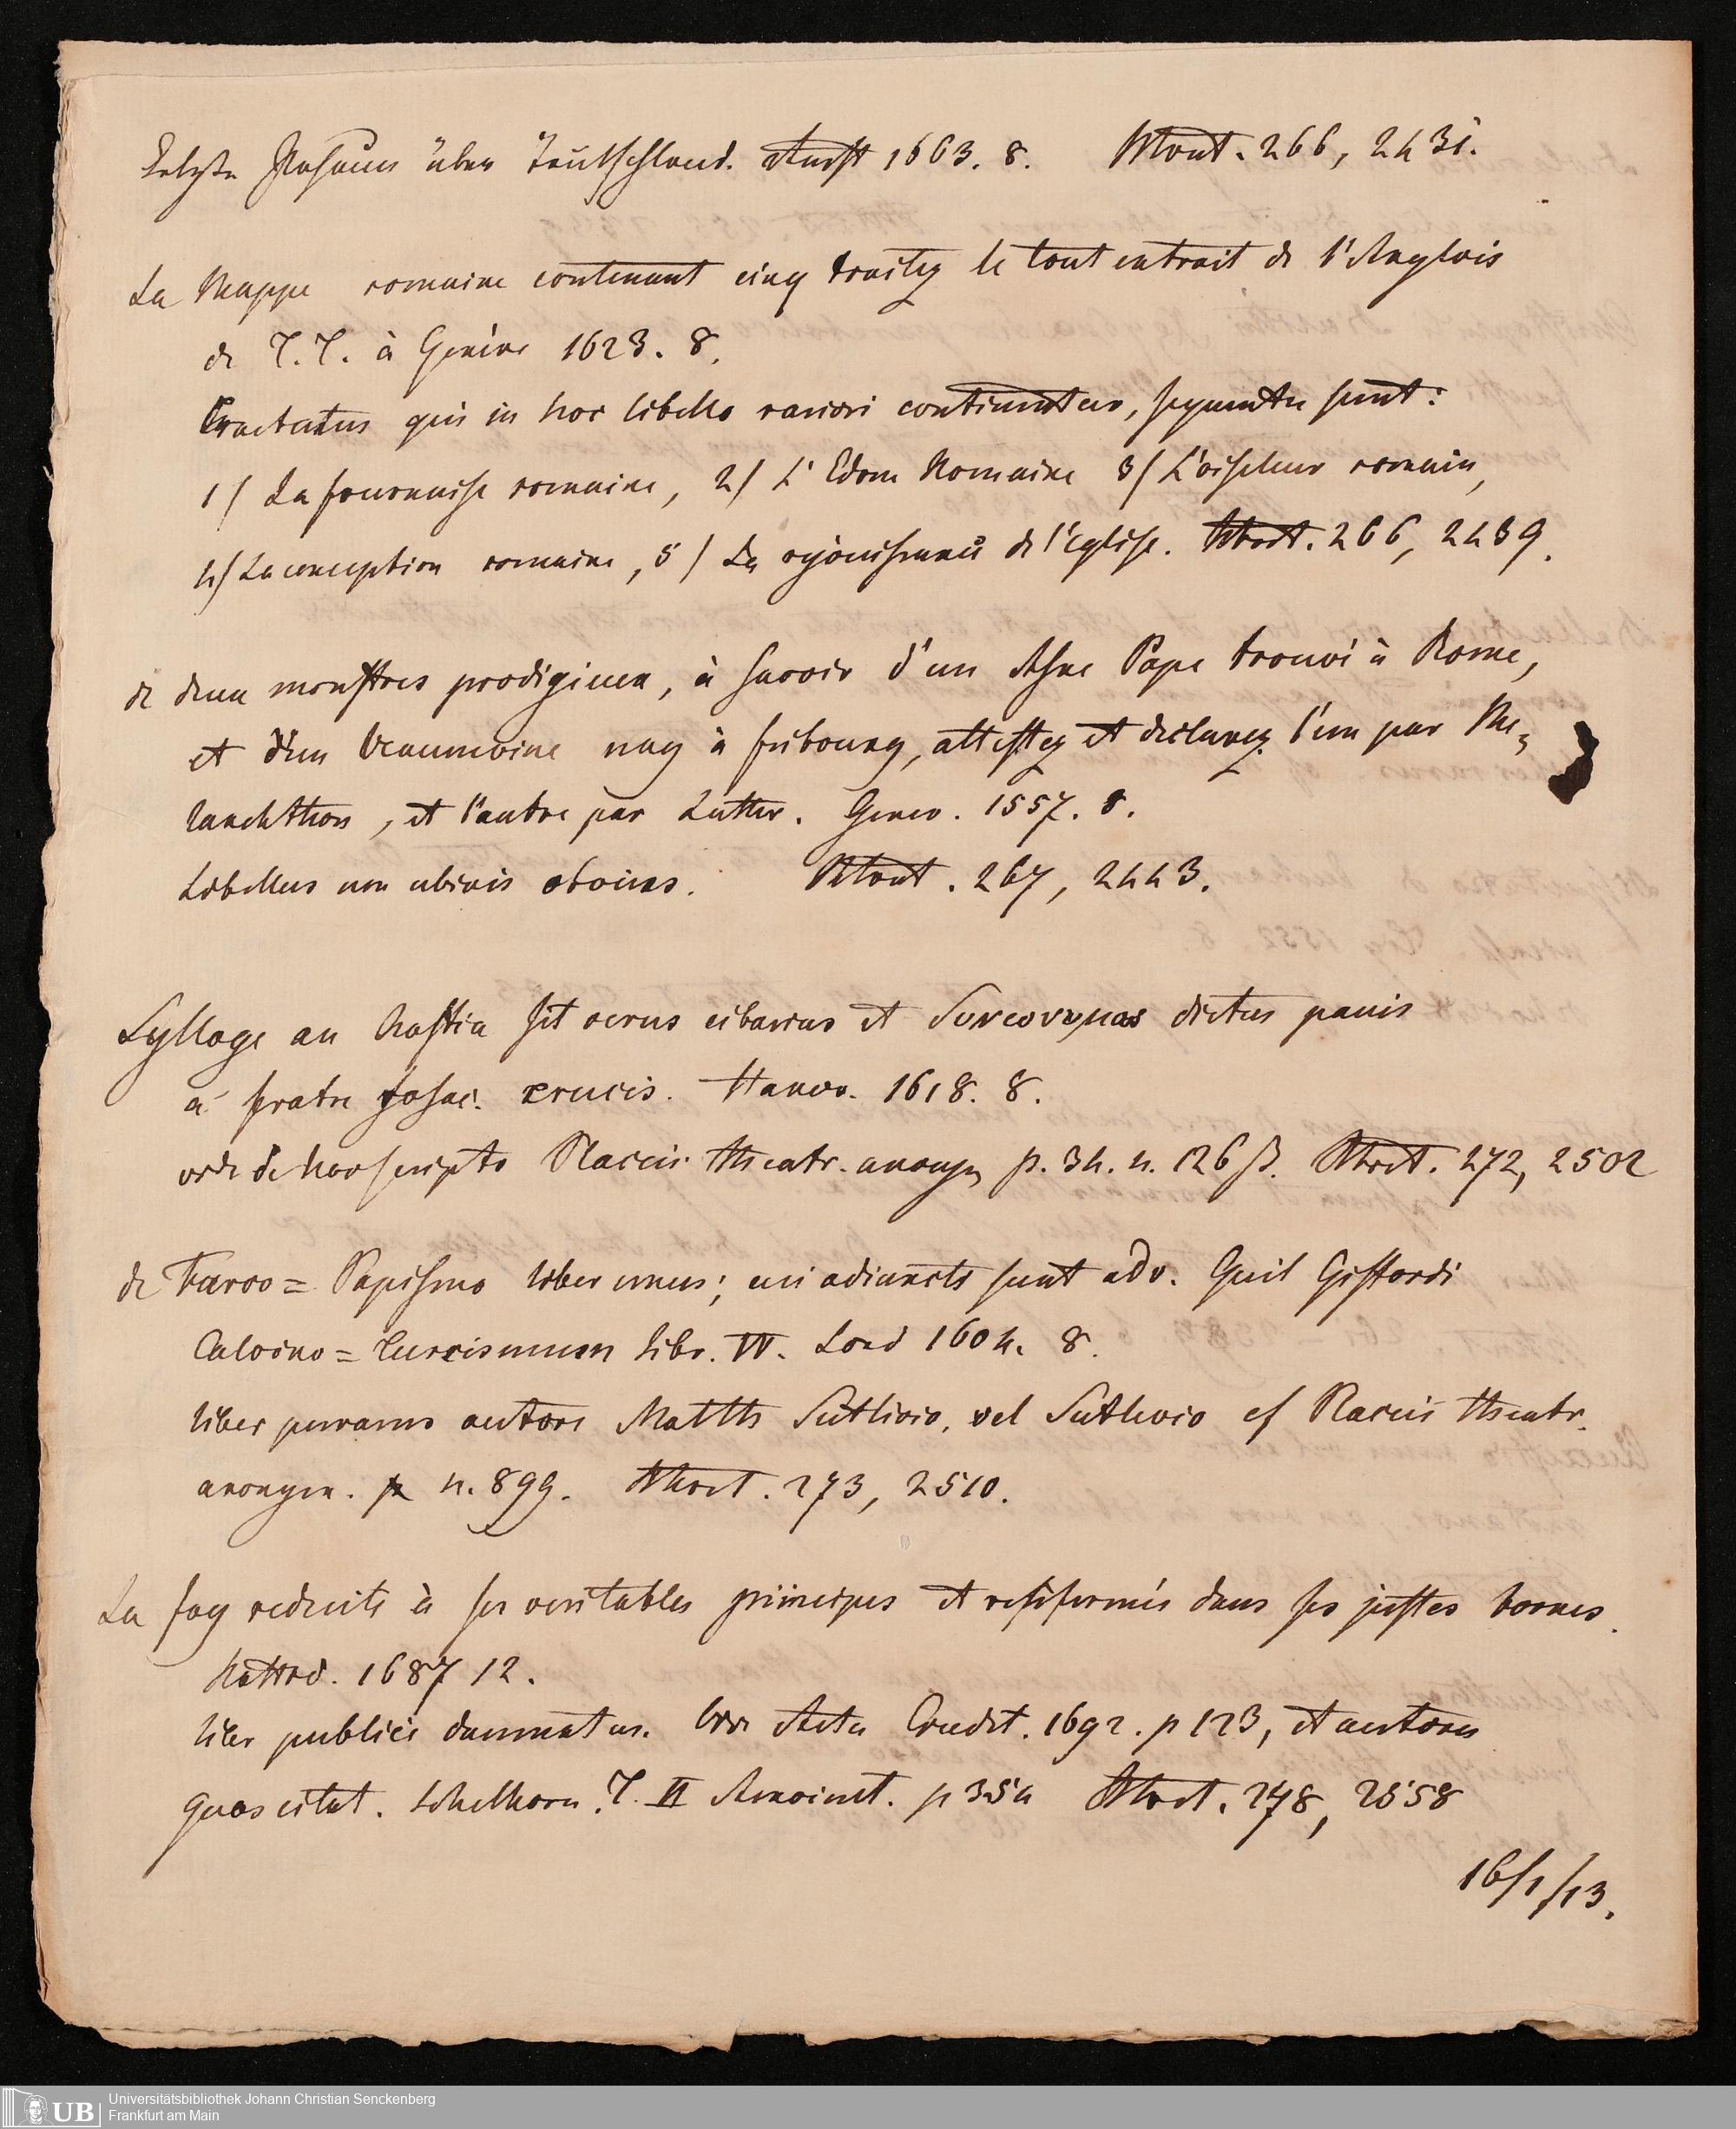 Letzte Posaun über Teutschland. Amst 1663. 8. 266, 2431.
La Mappe romaine contenant cinq traitez le tout extrait de l'Anglois
de T. T. à Genève 1623. 8.
Tractatus qui in hoc libello rariori continentur, sequentes sunt:
1/ La fournaise romaine, 2/ L'Edom Romaine 3/ L'oiseleur romain,
4/ La conception romaine, 5/ La rejouissance de l'Eglise. 266, 2439.
de deux monstres prodigieux, à savoir d'un Asne Pape trouvé à Rome,
et d'un Veaumoine nay à Fribourg, attestez et declarez l'un par Me-
lanchthon, et l'autre par Luther. Genev. 1557. 8.
Libellus non ubivis obvius. 267, 2443.
Sylloge an hostia sit verus cibarius et dictus panis
a fratre crucis. Hanov. 1618. 8.
vide de hoc scripto Placcii theatr. anonym p. 34. n. 126 272, 2502
de Turco = Papismo liber unus; cui adiuncti sunt adv. Guil Giffordi
Calvino = Turcismum libr. IV. Lond 1604. 8.
liber perrarus autore Matth Sutlivio, vel Sutlevio cf Placcii theatr.
anonym. n. 899. 273, 2510.
La foy reduite à ses veritables principes et resserrée dans ses justes bornes.
Rottrd. 1687 12.
liber publice damnatus. Vide Acta Erudit. 1692. p 123, et autores
quos citat. Schelhorn. T. II Amoinit. p 354 278, 2558
16/1/13.